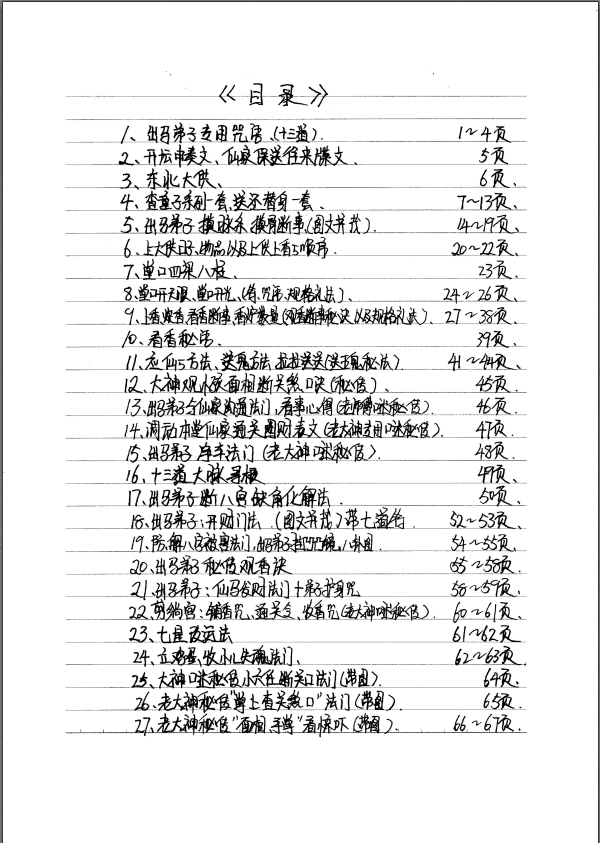 《目录》
1、出马弟子专用咒语、(十三道). 1～4页
2、开坛申表文、仙家保送往来牒文、 5页
3、东北大供、 6页、
4、查童子亲列一套、送还替身一套、 7～13页、
5、出马弟子 摸脉条、摸骨断事(图文并茂). 14～19页、
6、上大供日子、物品以及上供上香顺序. 20～22页、
7、堂口四梁八柱、 23页、
8、堂口开天眼、堂口开光、(符咒语 规格礼法)、 24～26页、
9、上香 看香断事 秘诀以及规格礼法)、 27～38页、
10、看香秘语、 39页、
11、方法、送方法、 秘法)、 41～44页、
12、大神观小孩面相断关煞口诀(秘传)、 45页、
13、出马弟子与仙家沟通法门、看事心得(老师傅口咪秘传). 46页
14、调动本堂仙家通关圆财表文(老大神专用口咪秘传)、 47页、
15、出马弟子净宅法门(老大神口咪秘传)、 48页、
16、十三道大脉寻根 49页、
17、出马弟子断八宫缺角化解法、 50页、
18、出马弟子:开财门法 (图文并茂)带七道符、 52～53页、
19、拆解八字被害法门、 八卦图 54～55页、
20、出马弟子秘传观香诀 55～58页、
21、出马弟子:仙马发财法门十弟子护身咒 58～59页、
22、剪狗宫:铺香咒、通关文、收香咒(老大神口咪秘传)、 60～61页、
23、七星改运法 61～62页
24、立鸡蛋、收小儿失魂法门、 62～63页、
25、大神口咪秘传小六壬断关口法门(带图)、 64页、
26、老大神秘传"掌上查关煞口"法门(带图)、 65页、
27、老大神秘传"面相、手掌"看惊吓(带图)、 66～67页、